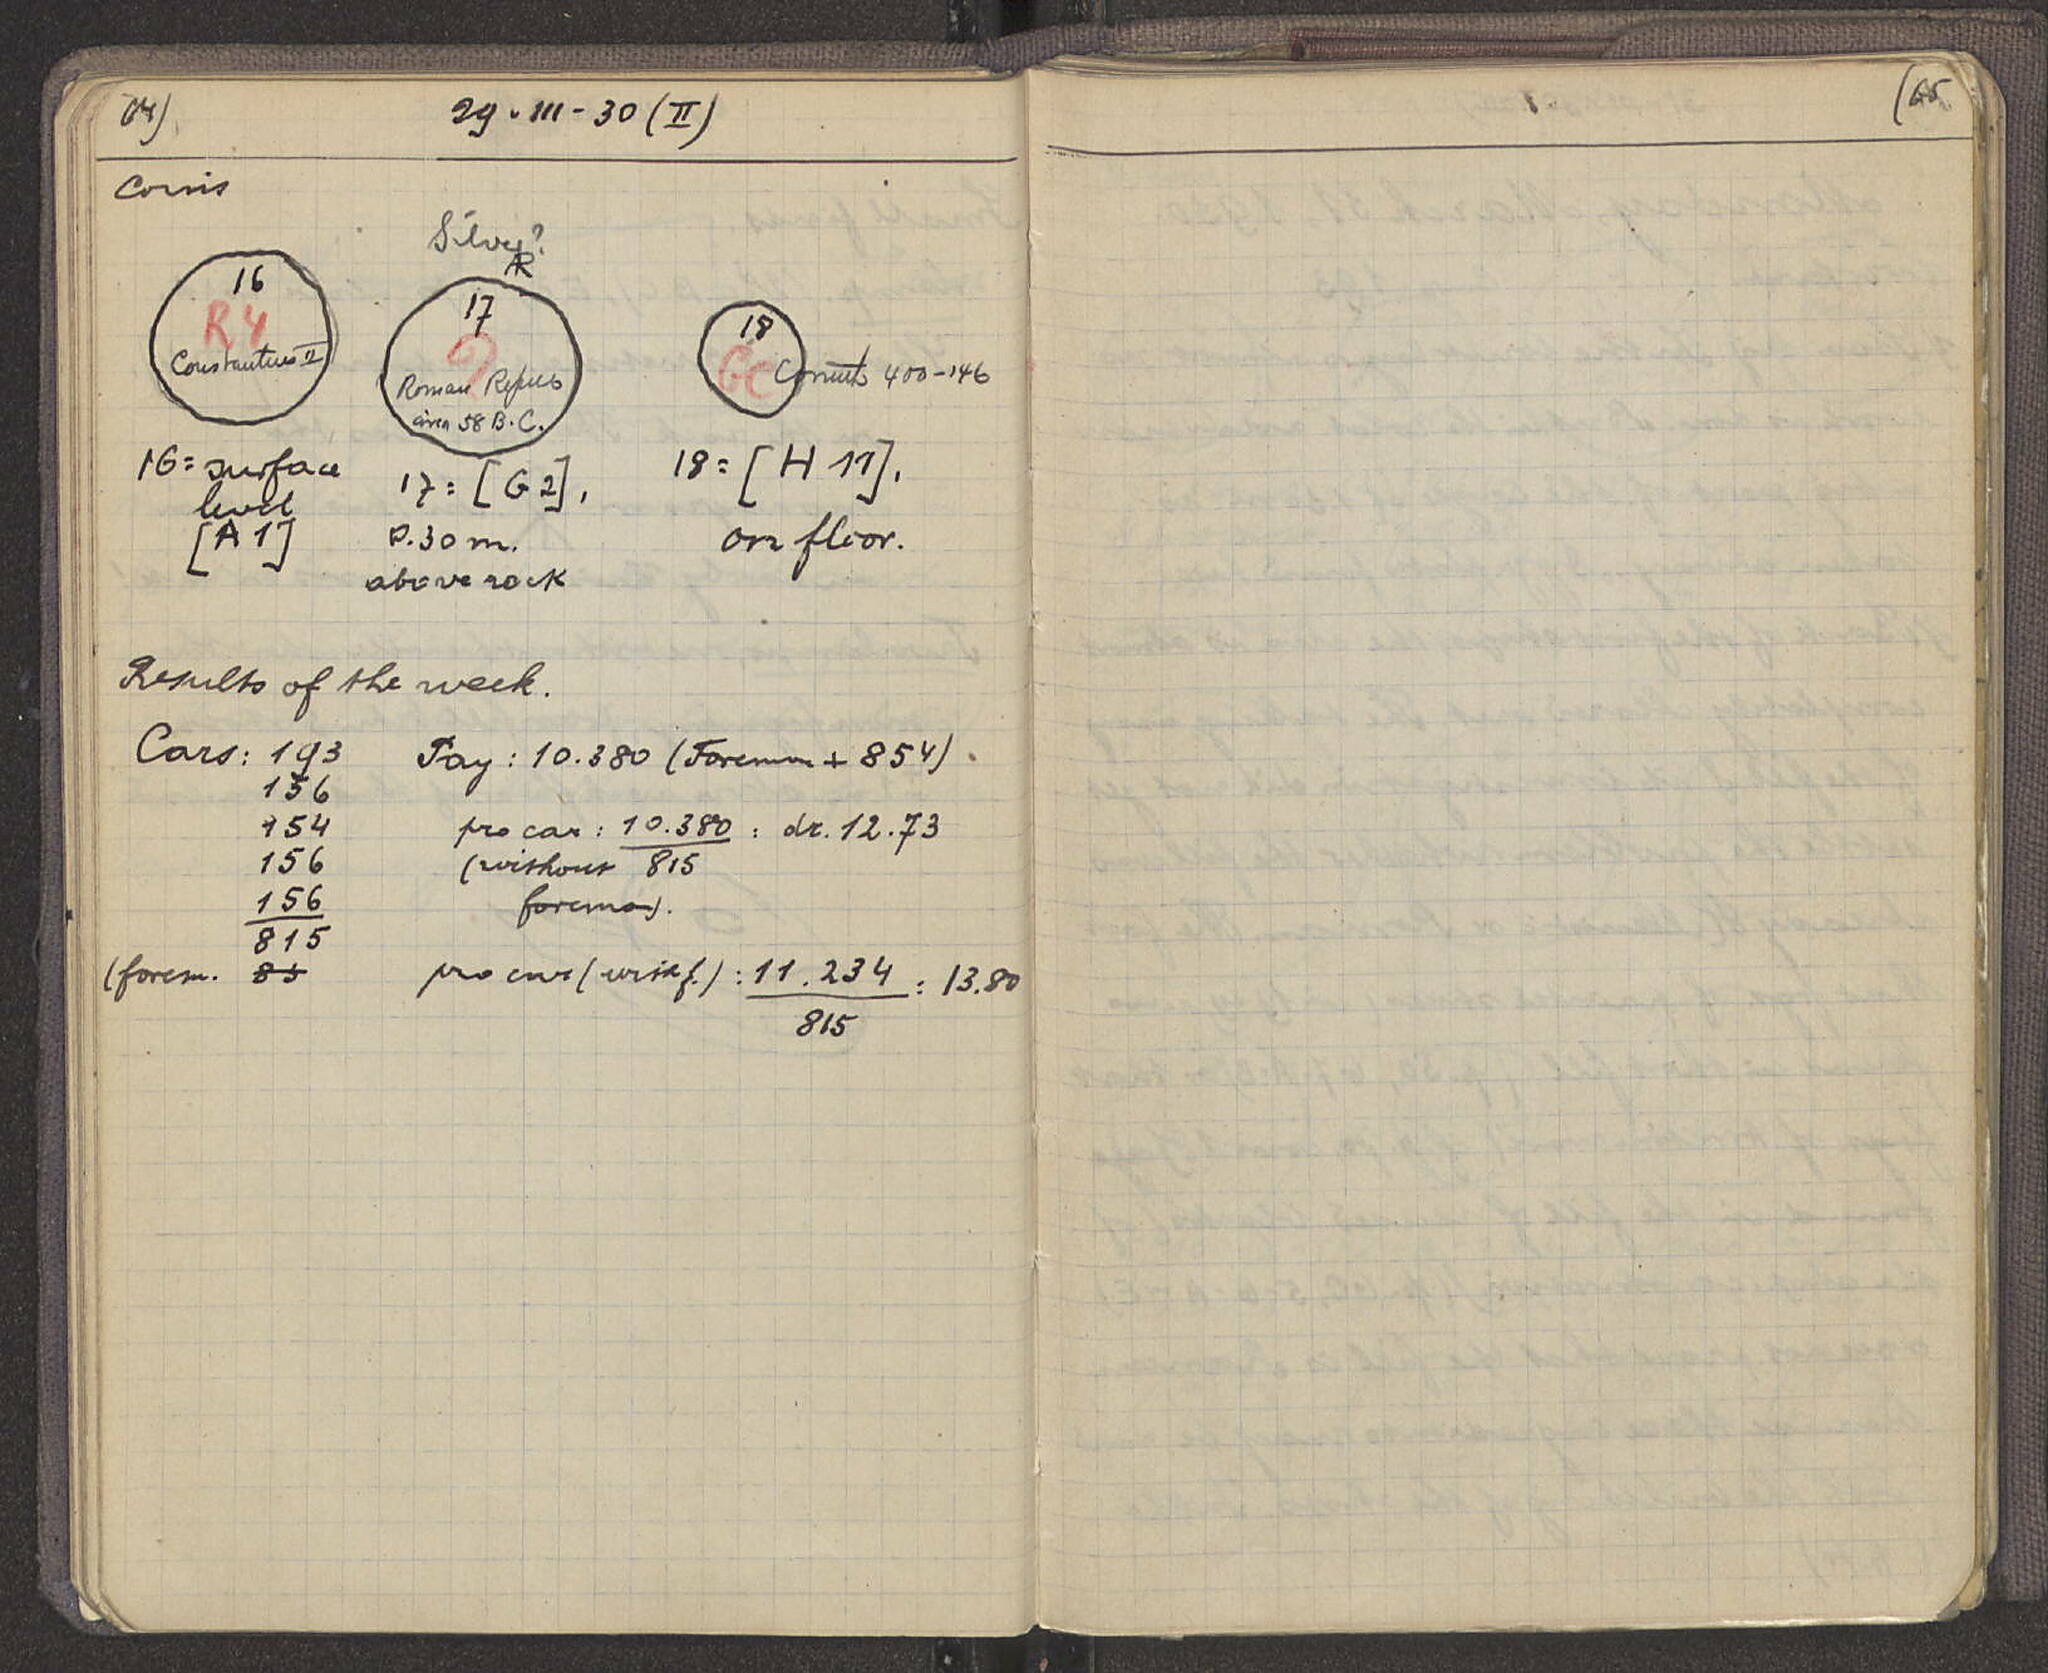 64)
29 • III - 30 (II)
Coins
Silver?
AR
16
R 4
Constantius II
17
Roman Repub
circa 58 B.C.
18
GC
Corinth 400-146
16 = surface
level
[A 1]
17 = [G 2],
0.30 m.
above rock
18 = [H 11],
on floor.
Results of the week.
Cars: 193 Pay: 10.380 (Foreman + 854)
156
154 pro car: 10.380 : dr. 12.73
156 (without 815
156 foreman).
815
(forem. pro car (with f.): 11.234 = 13.80
815
(65